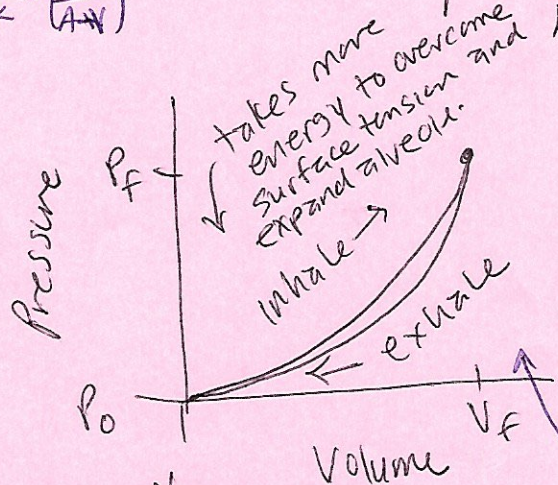 takes more
energy to overcome
surface tension and
expand alveola.
Pf
Pressure
inhale
exhale
P0
Vf
Volume